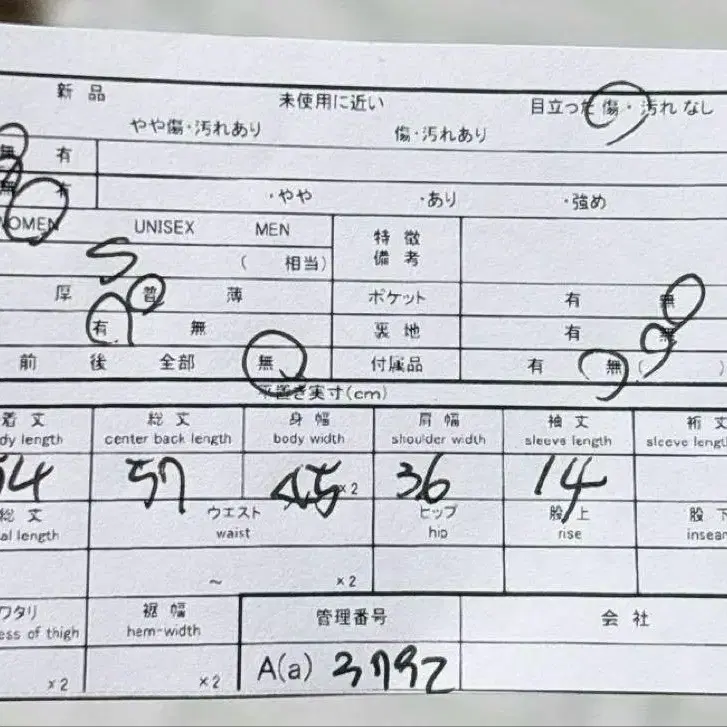 新品 未使用に近い 目立った傷・汚れなし
やや傷・汚れあり 傷・汚れあり
無 有
無 有 ・やや ・あり ・強め
WOMEN UNISEX MEN 特徴
S ( 相当) 備考
厚 普 薄 ポケット 有 無
有 無 裏地 有 無
前 後 全部 無 付属品 有 無 ( )
平置き実寸(cm)
着丈 総丈 身幅 肩幅 袖丈 裄丈
dy length center back length body width shoulder width sleeve length sleeve length
54 57 45 ×2 36 14
総丈 ウエスト ヒップ 股上 股下
al length waist hip rise insean
~ ×2
ワタリ 裾幅 管理番号 会社
ess of thigh hem-width
×2 ×2 A(a) 3792